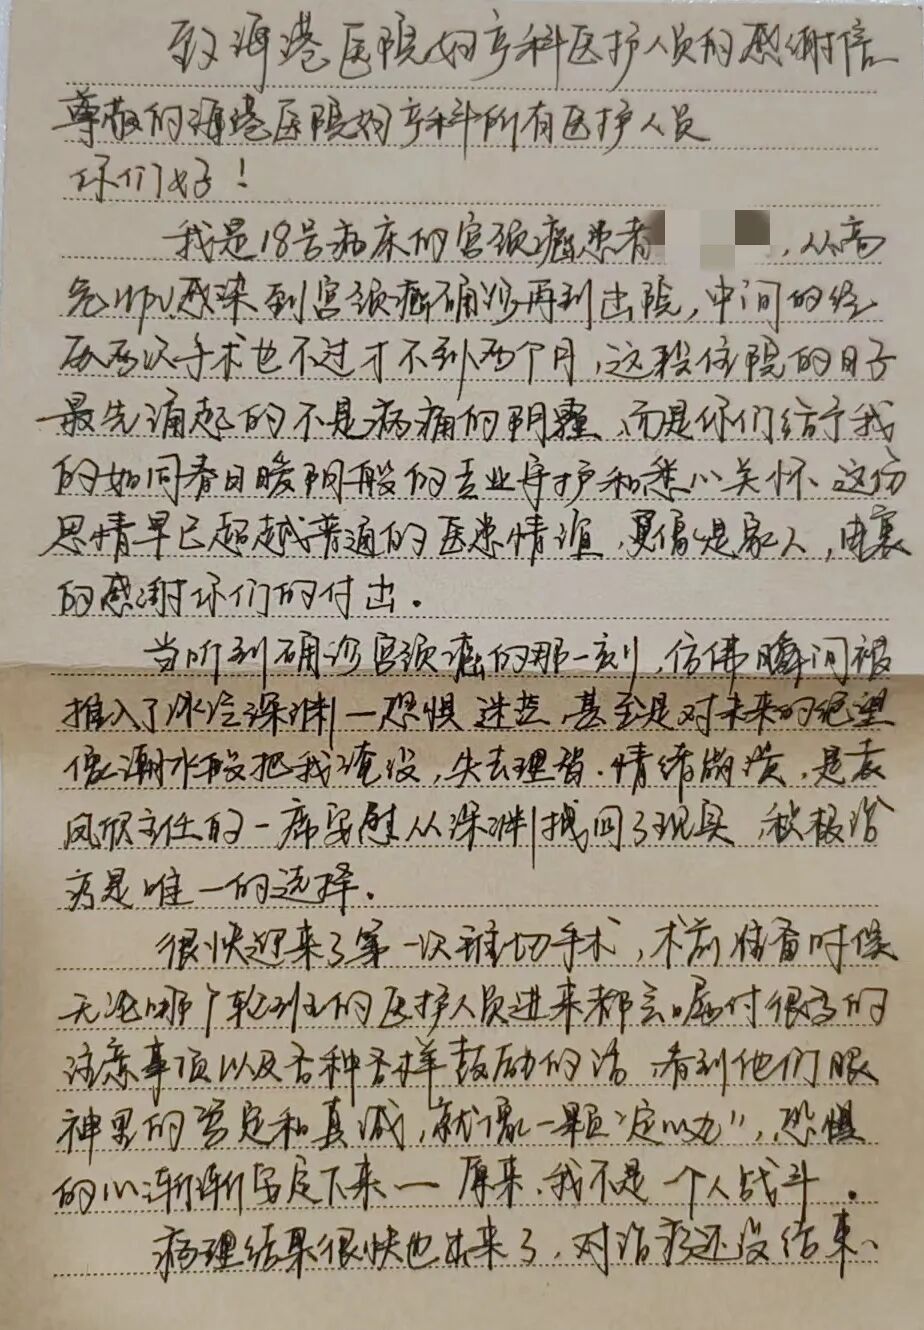 致海港医院妇产科医护人员的感谢信
尊敬的海港医院妇产科所有医护人员
你们好！
我是18号病床的宫颈癌患者，从高
危HPV感染到宫颈癌确诊再到出院，中间的经
历两次手术也不过才不到两个月，这段住院的日子
最先涌起的不是病痛的阴霾、而是你们给予我
的如同春日暖阳般的专业守护和悉心关怀、这份
恩情早已超越普通的医患情谊，更像是家人，由衷
的感谢你们的付出．
当听到确诊宫颈癌的那一刻，仿佛瞬间被
推入了冰冷深渊—恐惧 迷茫 甚至是对未来的绝望
像潮水般把我淹没，失去理智．情绪崩溃，是袁
凤欣主任的一席安慰从深渊拽回了现实 积极治
疗是唯一的选择．
很快迎来了第一次锥切手术，术前准备时候
无论哪个轮班的医护人员进来都会嘱付很多的
注意事项以及各种各样鼓励的话 看到他们眼
神里的坚定和真诚，就像一颗“定心丸”，恐惧
的心渐渐安定下来— 原来、我不是一个人战斗．
病理结果很快也出来了，对治疗还没结束、